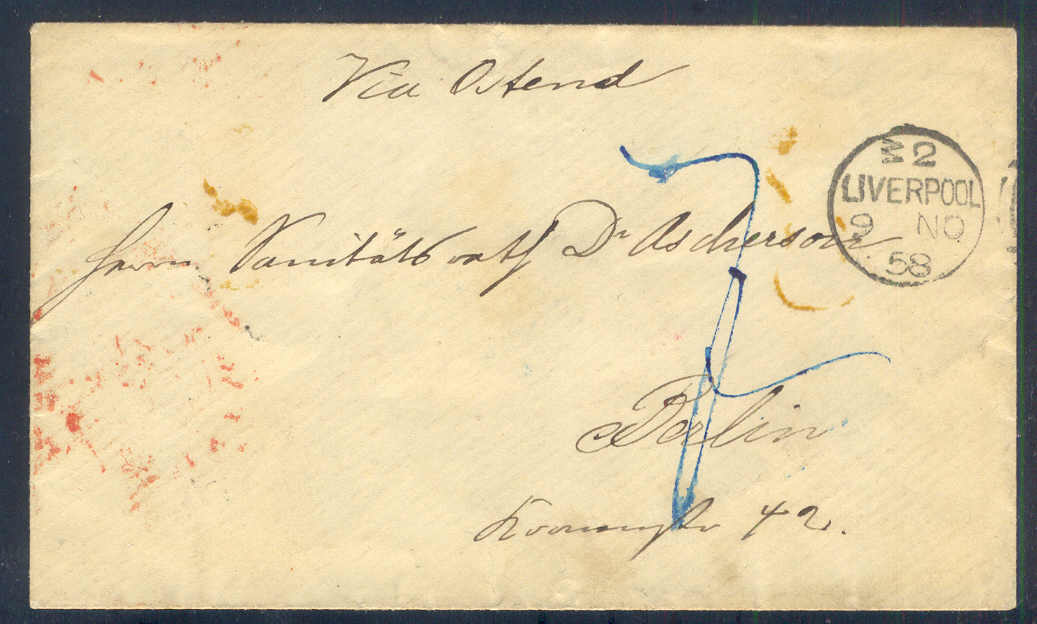 Via Ostend
Herrn Sanitätsrath Dr Ascherson
Berlin
42.
7
W 2
LIVERPOOL
9 NO
58